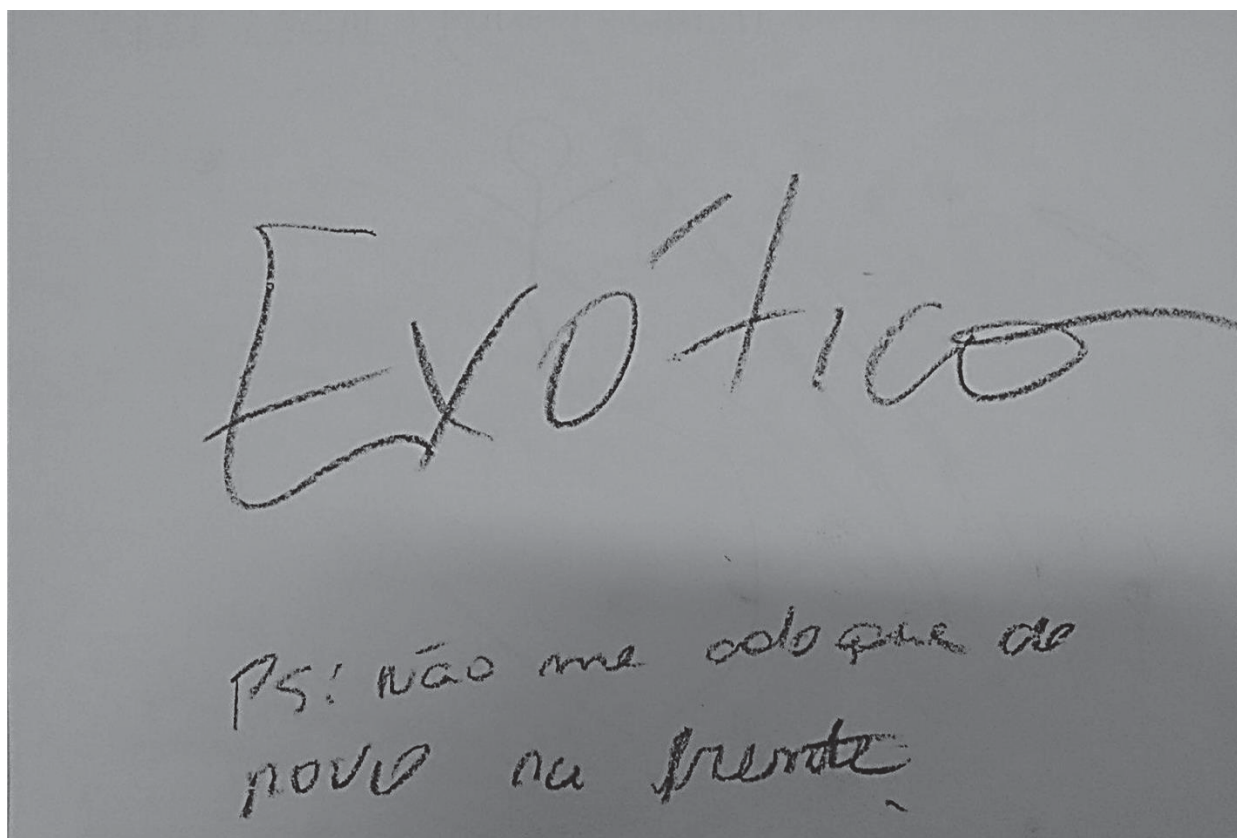 Exótico
Ps: não me coloque de
novo na frente